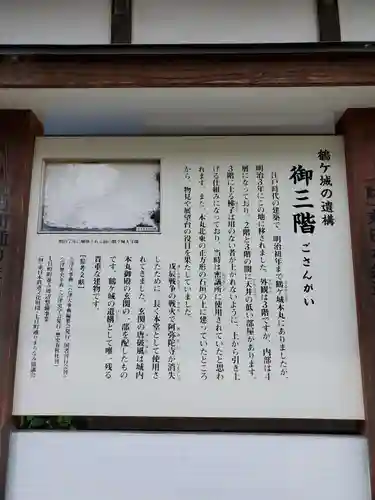 鶴ケ城の遺構
御三階 ごさんがい
江戸時代の建築で、明治初年まで鶴ケ城本丸にありましたが、
明治3年にこの地に移されました。外観は3階ですが、内部は4
層になっており、2階と3階の間に天井の低い部屋があります。
3階に上る梯子は用のない者が上がれないように、上から引き上
げる仕組みになっており、当時は密議所に使用されていたと思わ
れます。また、本丸北東の正方形の石垣の上に建っていたところ
から、物見や展望台の役目を果たしていました。
戊辰戦争の戦火で阿弥陀寺が消失
したために、長く本堂として使用さ
れてきました。玄関の唐破風は城内
本丸御殿の玄関の一部を配したもの
です。鶴ケ城の遺構として唯一残る
貴重な建物です。
【参考文献】